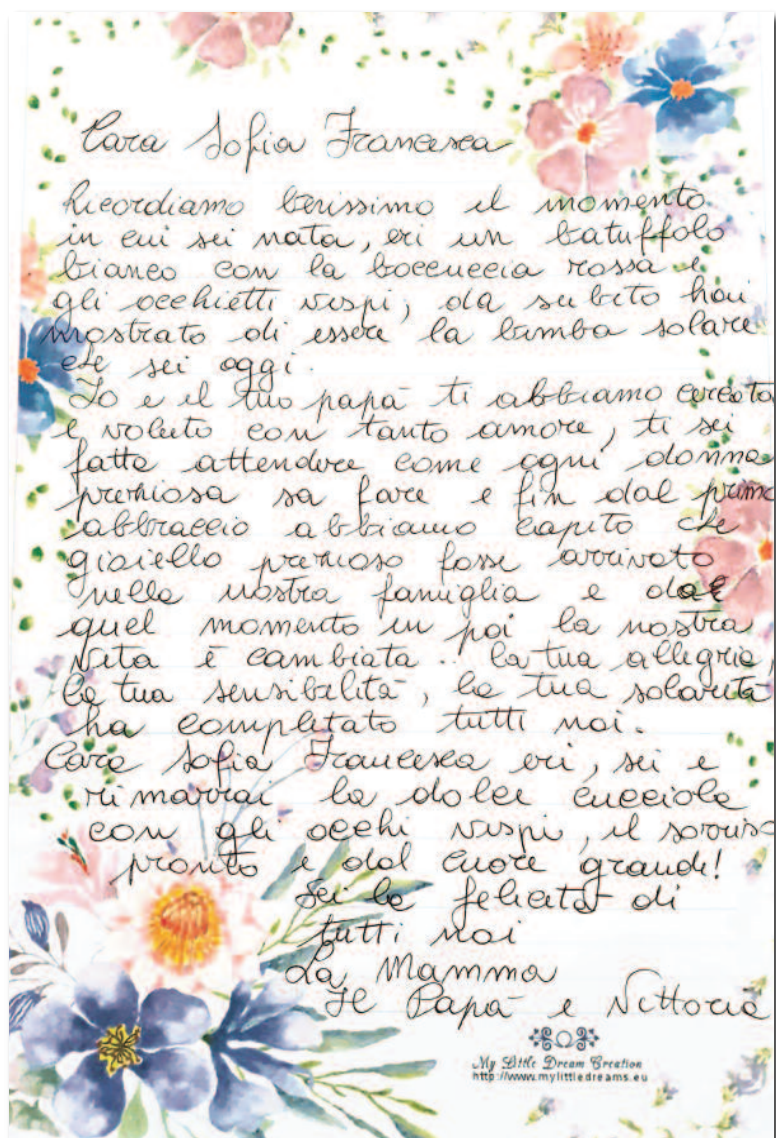 Cara Sofia Francesca
Ricordiamo benissimo il momento
in cui sei nata, eri un batuffolo
bianco con la boccuccia rossa e
gli occhietti vispi, da subito hai
mostrato di essere la bimba solare
che sei oggi.
Io e il tuo papà ti abbiamo cercata
e voluto con tanto amore, ti sei
fatta attendere come ogni donna
preziosa sa fare e fin dal primo
abbraccio abbiamo capito che
gioiello prezioso fosse arrivato
nella nostra famiglia e da
quel momento in poi la nostra
vita è cambiata.. la tua allegria,
la tua sensibilità, la tua solarità
ha completato tutti noi.
Cara Sofia Francesca eri, sei e
rimarrai la dolce cucciola
con gli occhi vispi, il sorriso
pronto e dal cuore grande!
Sei la felicità di
tutti noi
La Mamma
Il Papà e Vittoria
My Little Dream Creation
http://www.mylittledreams.eu